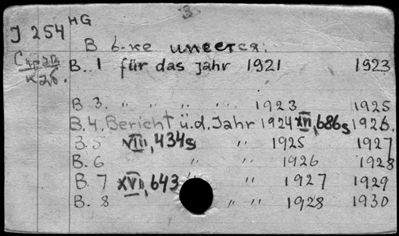 3.
J 254 HG
В б-ке имеется:
B. 1 für das Jahr 1921 1923
B 3. " " " " 1923 1925
B. 4. Bericht ü.d. Jahr 1924 XVI, 686 s 1926.
B. 5 VIII, 434s " 1925 1927
B. 6 " " 1926 1928
B. 7 XVI, 643 " " 1927 1929
B. 8 " " 1928 1930